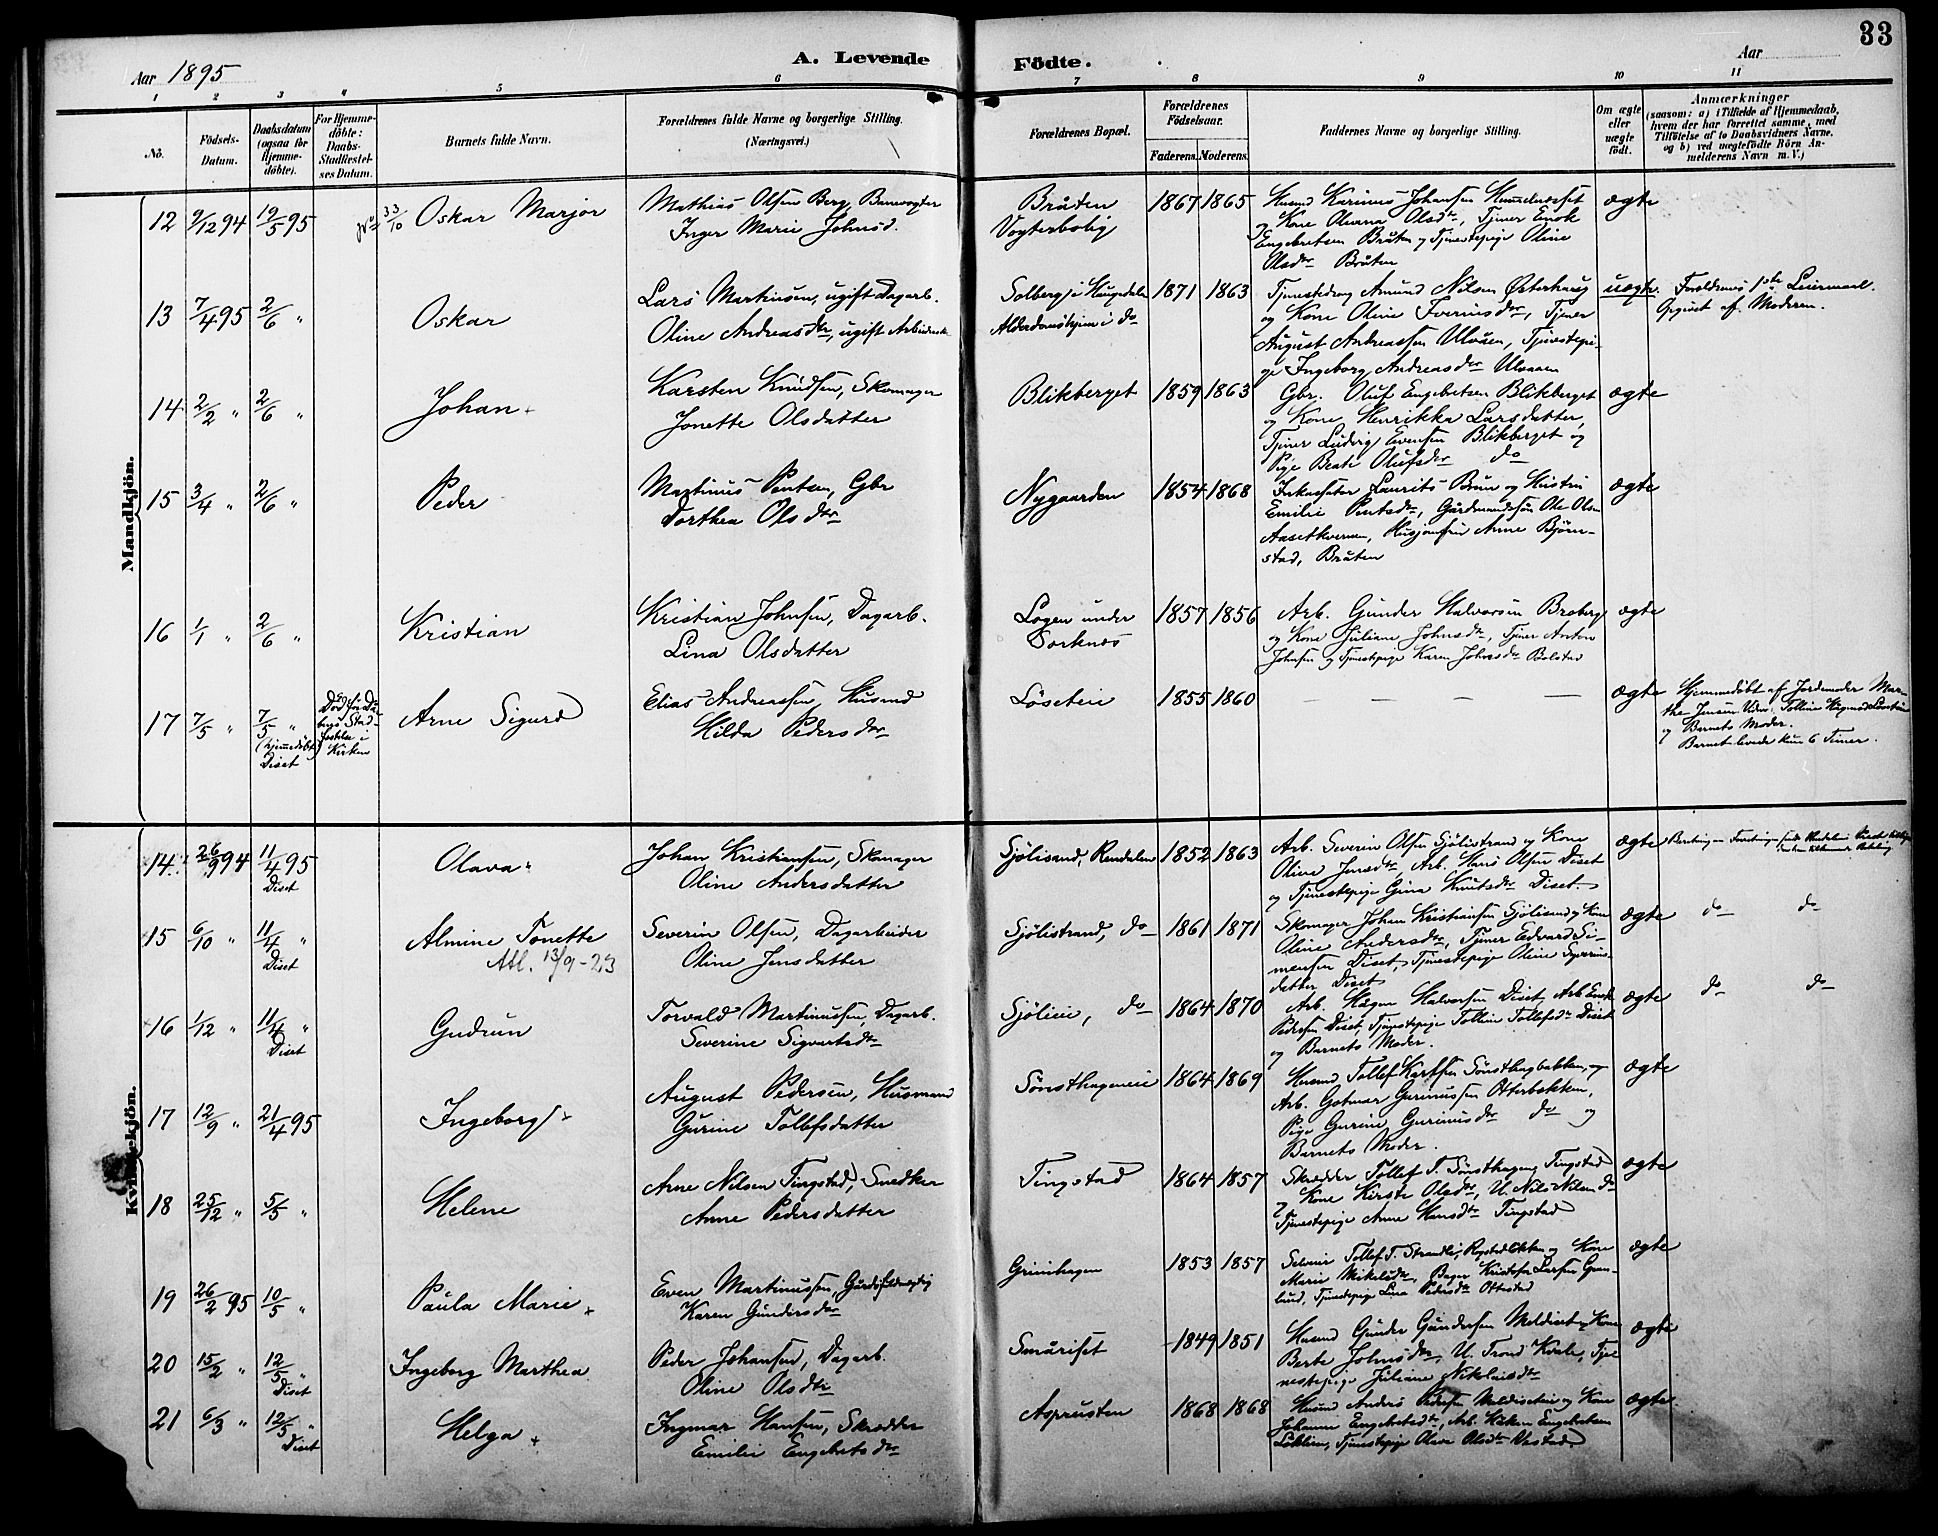 33
Aar 1895
A. Levende Födte.
Aar
1 2 3 4 5 6 7 8 9 10 11
No.
Födsels-Datum.
Daabsdatum (ogsaa for Hjemme-döbte).
For Hjemme-döbte: Daabs-Stadfæstel-ses Datum.
Barnets fulde Navn.
Forældrenes fulde Navne og borgerlige Stilling. (Næringsvei.)
Forældrenes Bopæl.
Forældrenes Födselsaar.
Faderens. Moderens.
Faddernes Navne og borgerlige Stilling.
Om ægte eller uægte födt.
Anmærkninger
(saasom: a) i Tilfælde af Hjemmedaab,
hvem der har forrettet samme, med
Tilföielse af to Daabsvidners Navne,
og b) ved uægtefödte Börn An-
melderens Navn m. V.)
Mandkjön.
12 9/12 94 19/5 95 Oskar Marjor
Mathias Olsen Berg, Banevogter
Inger Marie Johnsd.
Bråten
Vogterbolig
1867 1865
Husmd Karinus Johansen
og Kone Oleana Olsdtr, Tjener Enok
Engebretsen Bråten og Tjenestepige Oline
Olsdtr Bråten
ægte
13 7/4 95 2/6 " Oskar
Lars Martinsen, ugift Dagarb.
Oline Andreasdtr, ugift
Solberg i Haugedalen
Alderdomshjem i do
1871 1863
Tjenestedreng Amund Nilsen Østerhaug
og Kone Oline Iversdtr, Tjener
August Andreassen Ulvåen, Tjenestepi-
ge Ingeborg Andreasdtr Ulvaaen
uægte. Forældrenes 1ste Leiermaal.
Opgivet af Moderen.
14 2/2 " 2/6 " Johan
Karsten Knudsen, Skomager
Jonette Olsdatter
Blikberget
1859 1863
Gbr. Oluf Engebretsen Blikberget
og Kone Henrikka Larsdatter,
Tjener Ludvig Evensen Blikberget og
Pige Beate Olufsdtr do
ægte
15 3/4 " 2/6 " Peder
Martinus Pentsen, Gbr
Dorthea Olsdtr
Nygaarden
1854 1868
Laurits Brun og Hustru
Emilie Pentsdtr, Gårdmandssøn Ole Olsen
Aasetkvernen, Arne Bjørn-
stad, Bråten
ægte
16 1/1 " 2/6 " Kristian
Kristian Johnsen, Dagarb.
Lina Olsdatter
Løgen under
Torkenæs
1857 1856
Arb. Gunder Halvorsen Broberg
og Kone Juliane Johnsdtr, Tjener Anton
Johnsen og Tjenestepige Karen Johnsdtr Bolstad
ægte
17 7/5 " 7/5 " (hjemmedöbt) Diset
Död før Daabens Stadfæstelse i Kirken
Arne Sigurd
Elias Andreassen, Husmd
Hilda Pedersdtr
Løseteie
1855 1860
— — —
ægte
Hjemmedöbt af Jordemoder Mar-
the Jensen. Vidne: Tolline
og Barnets Moder.
Barnet levede kun 6 Timer.
Kvindekjön.
14 26/9 94 11/4 95 Diset Olava
Johan Kristiansen, Skomager
Oline Andersdatter
Sjölisand, Rendalen
1852 1863
Arb. Severin Olsen Sjölistrand og Kone
Oline Jensdtr, Arb. Hans Olsen Diset
og Tjenestepige Gina Knutsdtr Diset.
ægte
15 6/10 " 11/4 " Diset Almine Tonette
Att. 13/9-23
Severin Olsen, Dagarbeider
Oline Jensdatter
Sjölistrand, do
1861 1871
Skomager Johan Kristiansen Sjölisand og Kone
Oline Andersdtr, Tjener Edvard Si-
mensen Diset, Tjenestepige Oline
datter Diset
ægte do do
16 1/12 " 11/4 " Diset Gudrun
Torvald Martinussen, Dagarb.
Severine Sigvartsdtr
Sjölieie, do
1864 1870
Arb. Hågen Halvorsen Diset, Arb.
Pedersen Diset, Tjenestepige Tolline Tollefsdtr Diset
og Barnets Moder.
ægte do do
17 12/9 " 21/4 95 Ingeborg
August Pedersen, Husmand
Gurine Tollefsdatter
Sønsthageneie
1864 1869
Husmd Tollef Karlsen Sønsthagbakken, og
Arb. Gotmar Gurinussen Otterbækken,
Pige Gurine Gurinusdtr do og
Barnets Moder.
ægte
18 25/12 " 5/5 " Helene
Arne Nilsen Tingstad, Snedker
Anne Pedersdatter
Tingstad
1864 1857
Skrædder Tollef T. Sønsthagen, Tingstad
og Kone Kirste Olsdtr, U. Nils Nilsen do
Tjenestepige Anne Hansdtr Tingstad
ægte
19 26/2 95 10/5 " Paula Marie
Even Martinussen,
Karen Gundersdtr
Grinihagen
1853 1857
Selveier Tollef T. Strandli, og Kone
Marie Mikelsdtr, Bager Kristofer Larsen Grøn-
lund, Tjenestepige Lina Pedersdtr Ottestad
ægte
20 15/2 " 12/5 " Diset Ingeborg Marthea
Peder Johansen, Dagarb.
Oline Olsdtr
Småriset
1849 1851
Husmd Gunder Gundersen Meldiset og Kone
Berte Johnsdtr, U. Trond Kvale, Tje-
nestepige Juliane Niklaisdtr
ægte
21 6/3 " 12/5 " Diset Helga
Ingmar Hansen, Skrædder
Emilie Engebretsdtr
Asprusten
1868 1868
Husmd Anders Pedersen Meldiseteie og Kone
Johanne Engebretsdtr, Arb. Håken Engebretsen
Løklien, Tjenestepige Olave Olsdtr
ægte